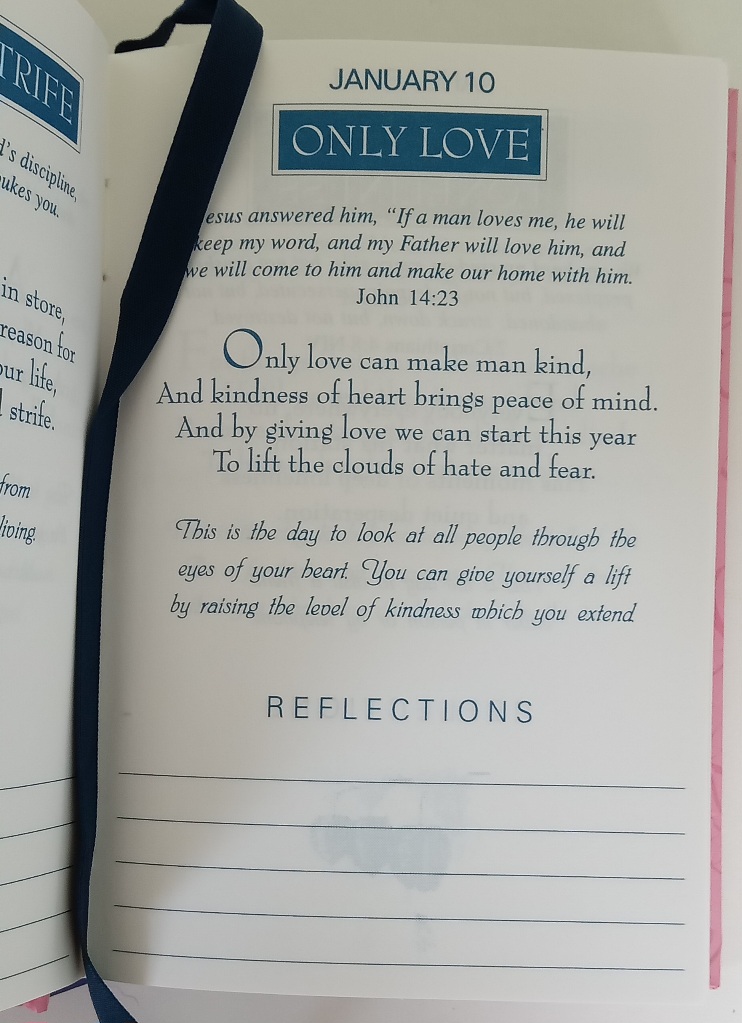 TRIFE
d's discipline,
ukes you.
in store,
reason for
our life,
strife.
from
living.
JANUARY 10
ONLY LOVE
esus answered him, “If a man loves me, he will
keep my word, and my Father will love him, and
we will come to him and make our home with him.
John 14:23
Only love can make man kind,
And kindness of heart brings peace of mind.
And by giving love we can start this year
To lift the clouds of hate and fear.
This is the day to look at all people through the
eyes of your heart. You can give yourself a lift
by raising the level of kindness which you extend.
REFLECTIONS